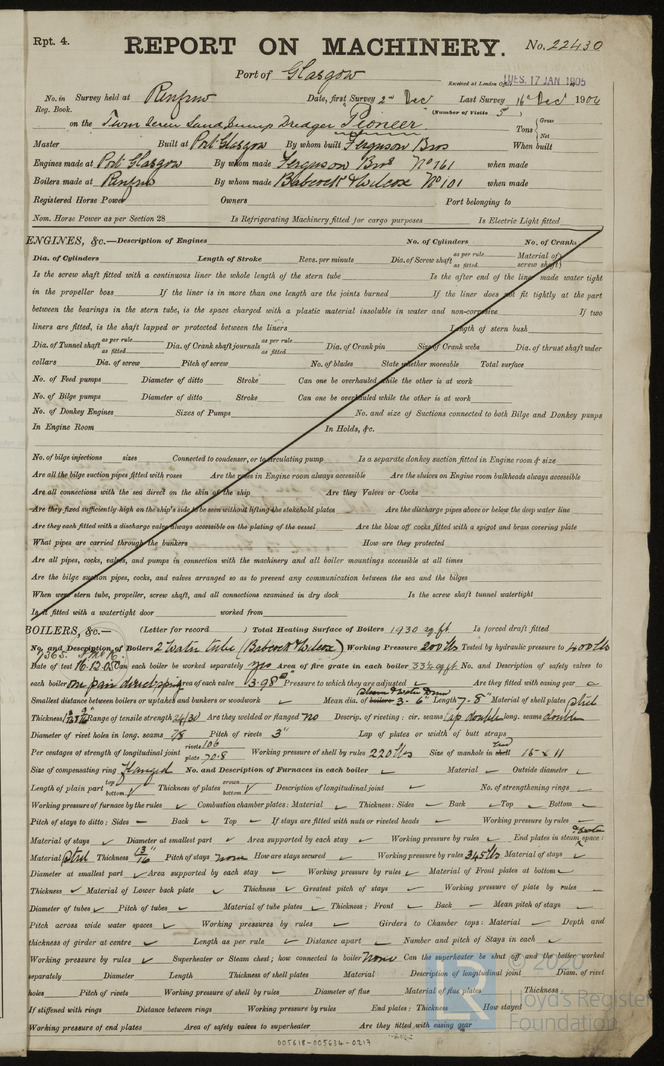 Rpt. 4.
REPORT ON MACHINERY.
No. 22430
Port of Glasgow
Received at London Office TUES. 17 JAN 1905
No. in Survey held at Renfrew Date, first Survey 2nd Dec Last Survey 16th Dec 190
Reg. Book. (Number of Visits 5)
on the Twin Screw Sand Pump Dredger Pioneer Tons Gross Net
Master Built at Port Glasgow By whom built Ferguson Bros When built
Engines made at Port Glasgow By whom made Ferguson Bros No 161 when made
Boilers made at Renfrew By whom made Babcock & Wilcox No 101 when made
Registered Horse Power Owners Port belonging to
Nom. Horse Power as per Section 28 Is Refrigerating Machinery fitted for cargo purposes Is Electric Light fitted
ENGINES, &c.—Description of Engines No. of Cylinders No. of Cranks
Dia. of Cylinders Length of Stroke Revs. per minute Dia. of Screw shaft as per rule as fitted Material of screw shaft)
Is the screw shaft fitted with a continuous liner the whole length of the stern tube Is the after end of the liner made water tight
in the propeller boss If the liner is in more than one length are the joints burned If the liner does not fit tightly at the part
between the bearings in the stern tube, is the space charged with a plastic material insoluble in water and non-corrosive If two
liners are fitted, is the shaft lapped or protected between the liners Length of stern bush
Dia. of Tunnel shaft as per rule as fitted Dia. of Crank shaft journals as per rule as fitted Dia. of Crank pin Size of Crank webs Dia. of thrust shaft under
collars Dia. of screw Pitch of screw No. of blades State whether moveable Total surface
No. of Feed pumps Diameter of ditto Stroke Can one be overhauled while the other is at work
No. of Bilge pumps Diameter of ditto Stroke Can one be overhauled while the other is at work
No. of Donkey Engines Sizes of Pumps No. and size of Suctions connected to both Bilge and Donkey pumps
In Engine Room In Holds, &c.
No. of bilge injections sizes Connected to condenser, or to circulating pump Is a separate donkey suction fitted in Engine room & size
Are all the bilge suction pipes fitted with roses Are the roses in Engine room always accessible Are the sluices on Engine room bulkheads always accessible
Are all connections with the sea direct on the skin of the ship Are they Valves or Cocks
Are they fixed sufficiently high on the ship's side to be seen without lifting the stokehold plates Are the discharge pipes above or below the deep water line
Are they each fitted with a discharge valve always accessible on the plating of the vessel Are the blow off cocks fitted with a spigot and brass covering plate
What pipes are carried through the bunkers How are they protected
Are all pipes, cocks, valves, and pumps in connection with the machinery and all boiler mountings accessible at all times
Are the bilge suction pipes, cocks, and valves arranged so as to prevent any communication between the sea and the bilges
When were stern tube, propeller, screw shaft, and all connections examined in dry dock Is the screw shaft tunnel watertight
Is it fitted with a watertight door worked from
BOILERS, &c.— (Letter for record ) Total Heating Surface of Boilers 1930 sq ft Is forced draft fitted
No. and Description of Boilers 2 Water tube (Babcock & Wilcox) Working Pressure 200 lbs Tested by hydraulic pressure to 400 lbs
Date of test 16.12.05 Can each boiler be worked separately yes Area of fire grate in each boiler 33½ sq ft No. and Description of safety valves to
each boiler one pair direct spring Area of each valve 3.98 Pressure to which they are adjusted ✓ Are they fitted with easing gear ✓
Smallest distance between boilers or uptakes and bunkers or woodwork ✓ Mean dia. of boilers Steam & Water Drum 3-6" Length 7-8" Material of shell plates steel
Thickness Range of tensile strength 26/30 Are they welded or flanged no Descrip. of riveting: cir. seams lap double long. seams double
Diameter of rivet holes in long. seams 7/8 Pitch of rivets 3" Lap of plates or width of butt straps
Per centages of strength of longitudinal joint rivets 106 plate 70.8 Working pressure of shell by rules 220 lbs Size of manhole in shell 15 x 11
Size of compensating ring flanged No. and Description of Furnaces in each boiler ✓ Material ✓ Outside diameter ✓
Length of plain part top bottom ✓ Thickness of plates crown bottom ✓ Description of longitudinal joint ✓ No. of strengthening rings
Working pressure of furnace by the rules ✓ Combustion chamber plates: Material ✓ Thickness: Sides ✓ Back ✓ Top ✓ Bottom ✓
Pitch of stays to ditto: Sides Back ✓ Top ✓ If stays are fitted with nuts or riveted heads ✓ Working pressure by rules
Material of stays ✓ Diameter at smallest part ✓ Area supported by each stay ✓ Working pressure by rules ✓ End plates in steam & water space:
Material steel Thickness 13/16 Pitch of stays none How are stays secured ✓ Working pressure by rules 345 lbs Material of stays ✓
Diameter at smallest part ✓ Area supported by each stay ✓ Working pressure by rules ✓ Material of Front plates at bottom ✓
Thickness ✓ Material of Lower back plate ✓ Thickness ✓ Greatest pitch of stays ✓ Working pressure of plate by rules
Diameter of tubes ✓ Pitch of tubes ✓ Material of tube plates ✓ Thickness: Front ✓ Back Mean pitch of stays
Pitch across wide water spaces ✓ Working pressures by rules ✓ Girders to Chamber tops: Material ✓ Depth and
thickness of girder at centre ✓ Length as per rule ✓ Distance apart ✓ Number and pitch of Stays in each ✓
Working pressure by rules ✓ Superheater or Steam chest; how connected to boiler none Can the superheater be shut off and the boiler worked
separately Diameter Length Thickness of shell plates Material Description of longitudinal joint Diam. of rivet
holes Pitch of rivets Working pressure of shell by rules Diameter of flue Material of flue plates Thickness
If stiffened with rings Distance between rings Working pressure by rules End plates: Thickness How stayed
Working pressure of end plates Area of safety valves to superheater Are they fitted with easing gear
005618-005634-0217
© 2020
Lloyd's Register
Foundation